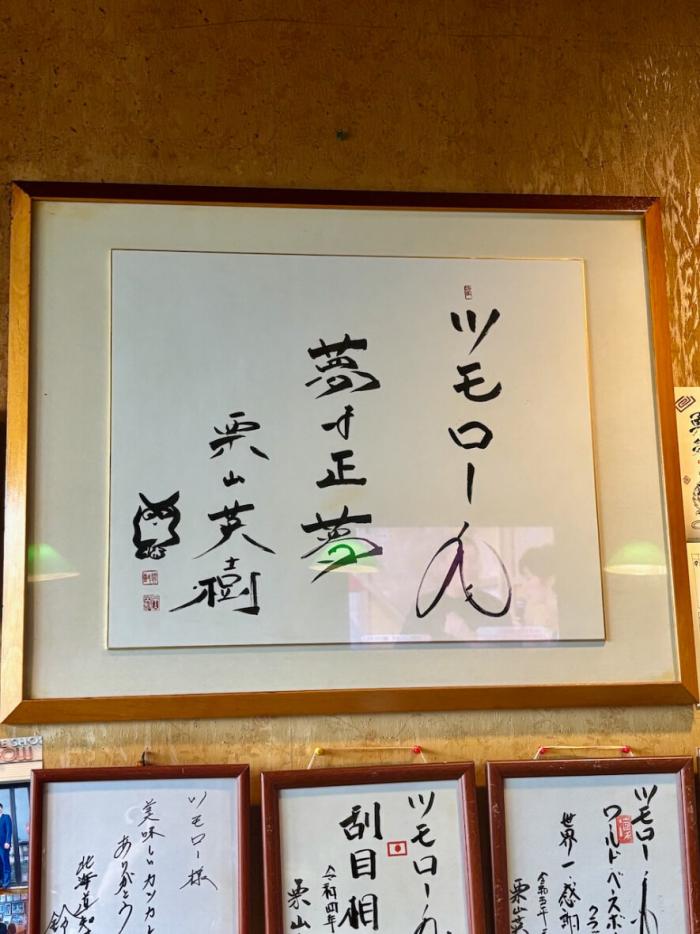 ツモロー
夢は正夢
栗山英樹
ツモロー様
美味しいカツカレ
ありがとう
北海道知
鈴
ツモロー
刮目相
令和四年
栗山
ツモロー
ワールド・ベースボ
クラ
世界一 感謝
令和五年
栗山英